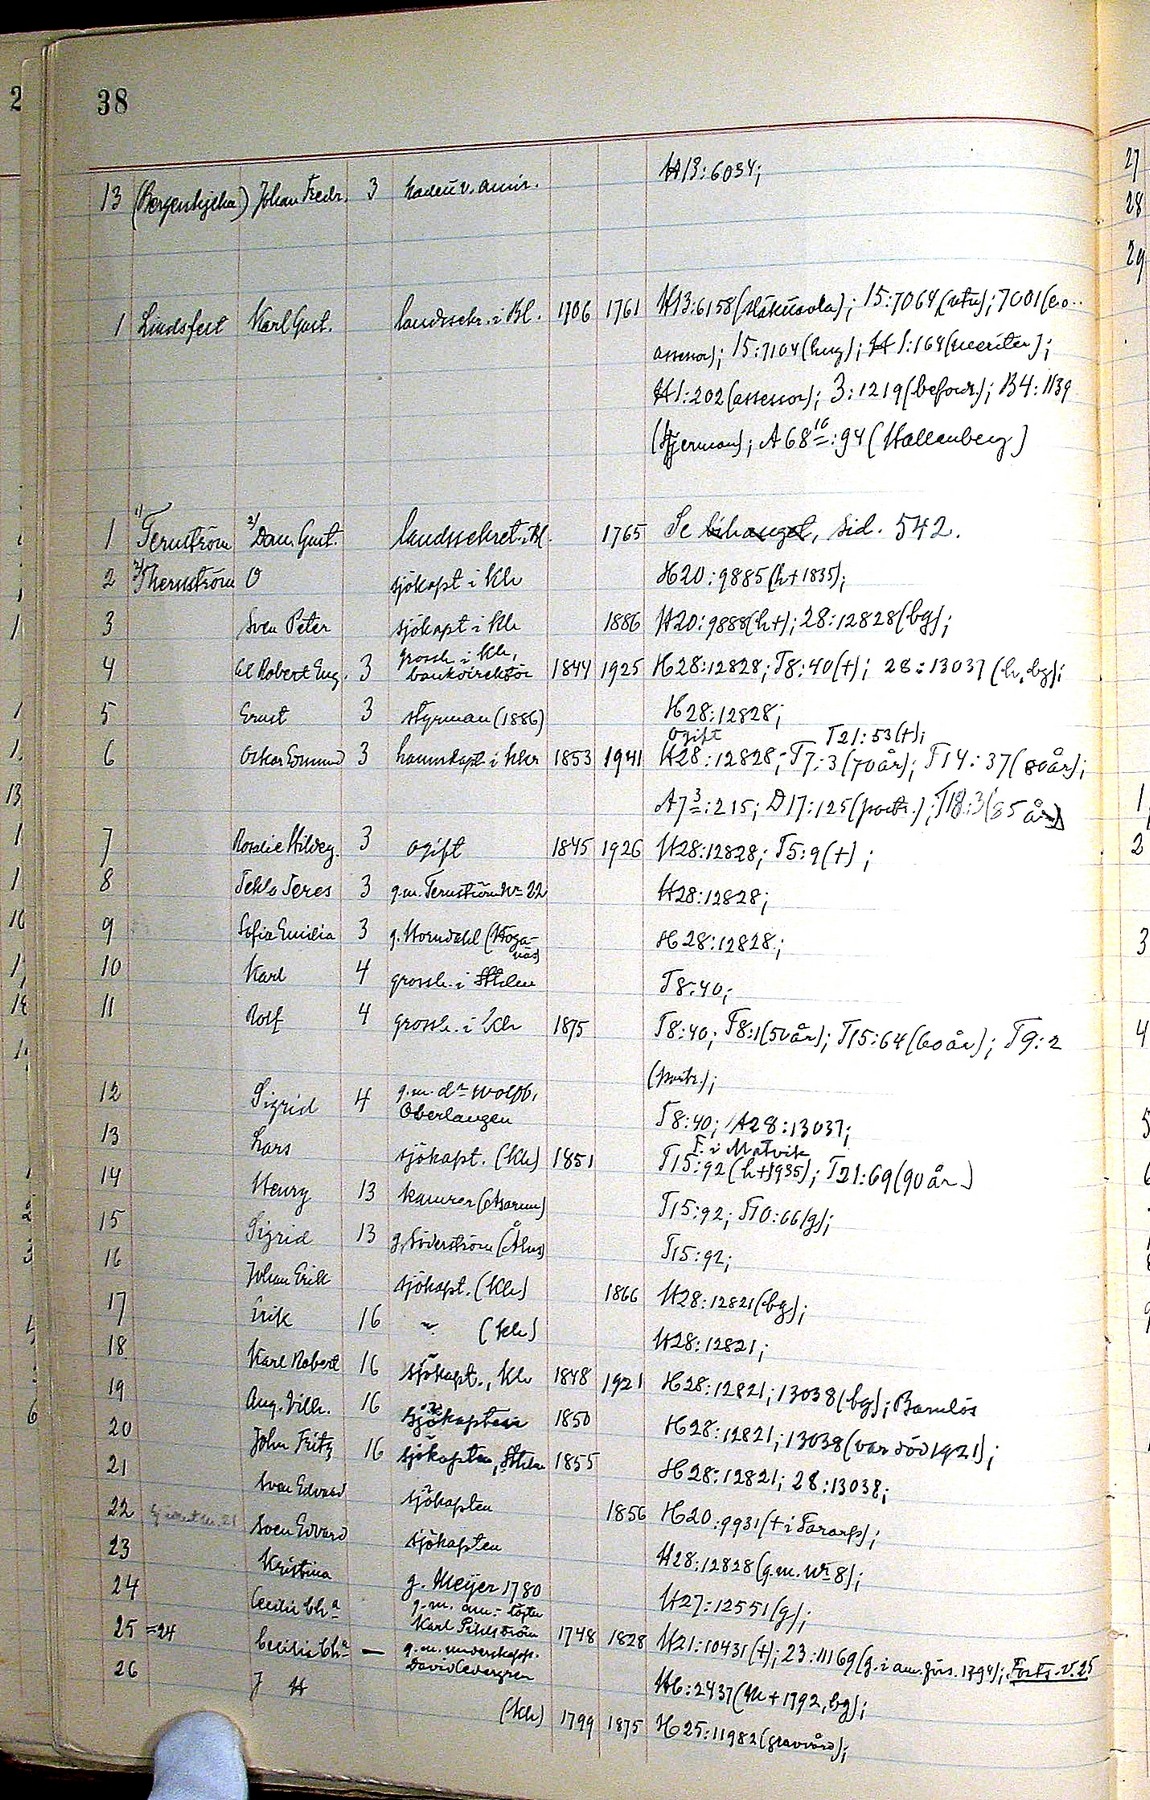 38
13 (Bergenstjelna) Johan Fredr. 3 kadett v. amir. H13:6034;
1 Lindsfelt Karl Gust. landssekr. i Bl. 1706 1761 H13:6158(släkttavla); 15:7064(utn); 7001(e.o.
assessor); 15:7104(hug); H1:164(meriter);
H1:202(assessor); 3:1219(befordr.); B4:1139
(Stjerman); A68 16:94 (Wallenberg)
1 1) Ternström 2) Dan. Gust. landssekret. i Bl. 1765 Se bihanget, sid. 542.
2 2) Thernström O sjökapt i Khr H20:9885(h+1835);
3 Sven Peter sjökapt i Khr 1886 H20:9888(h+); 28:12828(bg);
4 Cl Robert Eug. 3 grossh. i Khr, bankdirektör 1844 1925 H28:12828; T8:40(+); 28:13037(h, bg);
5 Ernst 3 styrman (1886) H28:12828;
ogift T21:53(+);
6 Oskar Edmund 3 hamnkapt. i Khr 1853 1941 H28:12828; T7:3(70år); T14:37(80år);
A7 3:215; D17:125(portr.); T18:3(85år)
7 Rosalie Hildeg. 3 ogift 1845 1926 H28:12828; T5:9(+);
8 Tekla Teres 3 g.m. Ternström Nr 22 H28:12828;
9 Sofia Emilia 3 g. Horndahl (Höganäs) H28:12828;
10 Karl 4 grossh. i Sthlm T8:40;
11 Rolf 4 grossh. i Khr 1875 T8:40; T8:1(50år); T15:64(60år); T9:2
(portr.);
12 Sigrid 4 g.m. dr Wolfb. Oberlangen T8:40; H28:13037;
F. i Matvik
13 Lars sjökapt. (Kh) 1851 T15:92(h+1935); T21:69(90år)
14 Henry 13 kamrer (Asarum) T15:92; T10:66(g);
15 Sigrid 13 g. Söderström (Åhus) T15:92;
16 Johan Erik sjökapt. (Kh) 1866 H28:12821(bg);
17 Erik 16 " (Kh) H28:12821;
18 Karl Robert 16 sjökapt., Khr 1848 1921 H28:12821; 13038(bg); Barnlös
19 Aug. Vilh. 16 sjökapten 1850 H28:12821; 13038(var död 1921);
20 John Fritz 16 sjökapten, Sthlm 1855 H28:12821; 28:13038;
21 Sven Edvard sjökapten 1856 H20:9931(+ i Fararp);
22 Sven Edvard sjökapten H28:12828(g.m. Nr 8);
23 Kristina g. Meijer 1780 H27:12551(g);
24 Cecilia Cha g.m. am.-löjtn Karl Pihlström 1748 1828 H21:10431(+); 23:11169(g. i am. förs. 1794); Forts. v. 25
25 =24 Cecilia Cha — g.m. underskepps. David Cedergren H6:2437(M+1792, bg);
26 J H (Kh) 1799 1875 H25:11982(gravvård);